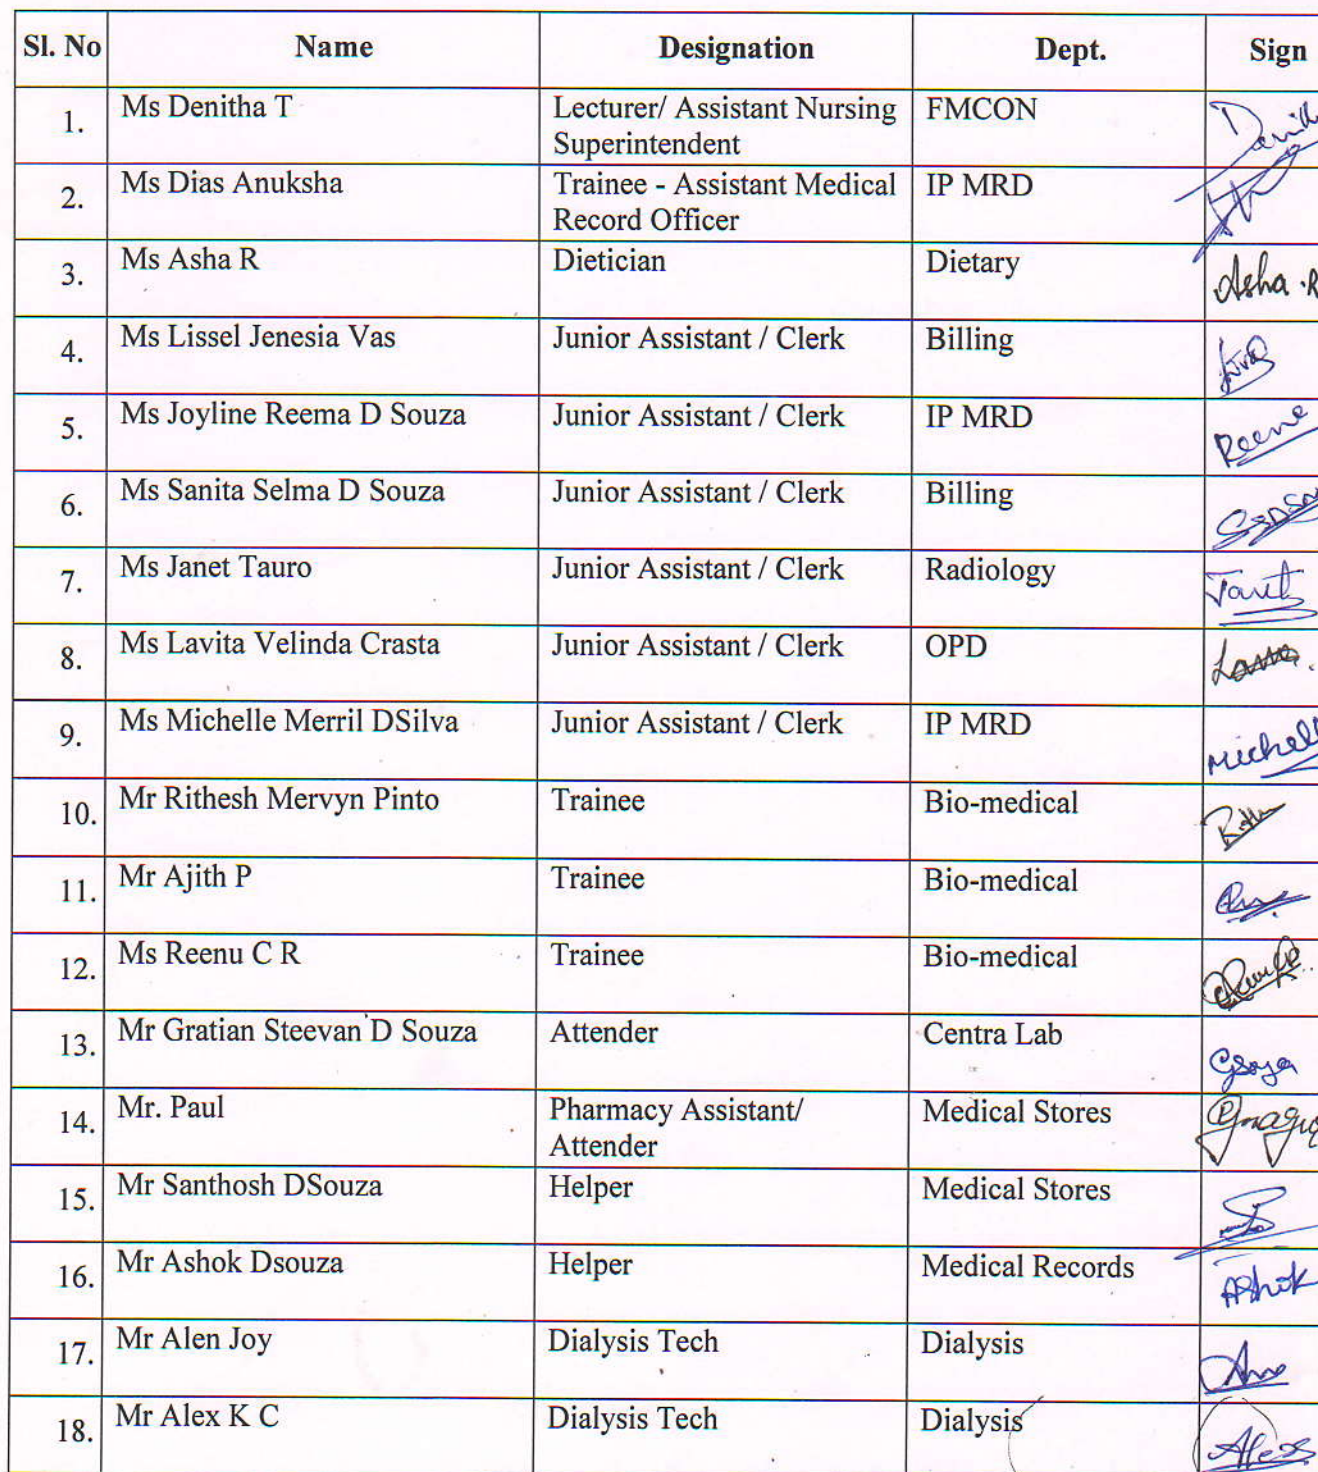 Sl. No Name Designation Dept. Sign
1. Ms Denitha T Lecturer/ Assistant Nursing FMCON
Superintendent
2. Ms Dias Anuksha Trainee - Assistant Medical IP MRD
Record Officer
3. Ms Asha R Dietician Dietary Asha .R
4. Ms Lissel Jenesia Vas Junior Assistant / Clerk Billing
5. Ms Joyline Reema D Souza Junior Assistant / Clerk IP MRD
6. Ms Sanita Selma D Souza Junior Assistant / Clerk Billing
7. Ms Janet Tauro Junior Assistant / Clerk Radiology
8. Ms Lavita Velinda Crasta Junior Assistant / Clerk OPD
9. Ms Michelle Merril DSilva Junior Assistant / Clerk IP MRD
10. Mr Rithesh Mervyn Pinto Trainee Bio-medical
11. Mr Ajith P Trainee Bio-medical
12. Ms Reenu C R Trainee Bio-medical
13. Mr Gratian Steevan D Souza Attender Centra Lab
14. Mr. Paul Pharmacy Assistant/ Medical Stores
Attender
15. Mr Santhosh DSouza Helper Medical Stores
16. Mr Ashok Dsouza Helper Medical Records Ashok
17. Mr Alen Joy Dialysis Tech Dialysis
18. Mr Alex K C Dialysis Tech Dialysis